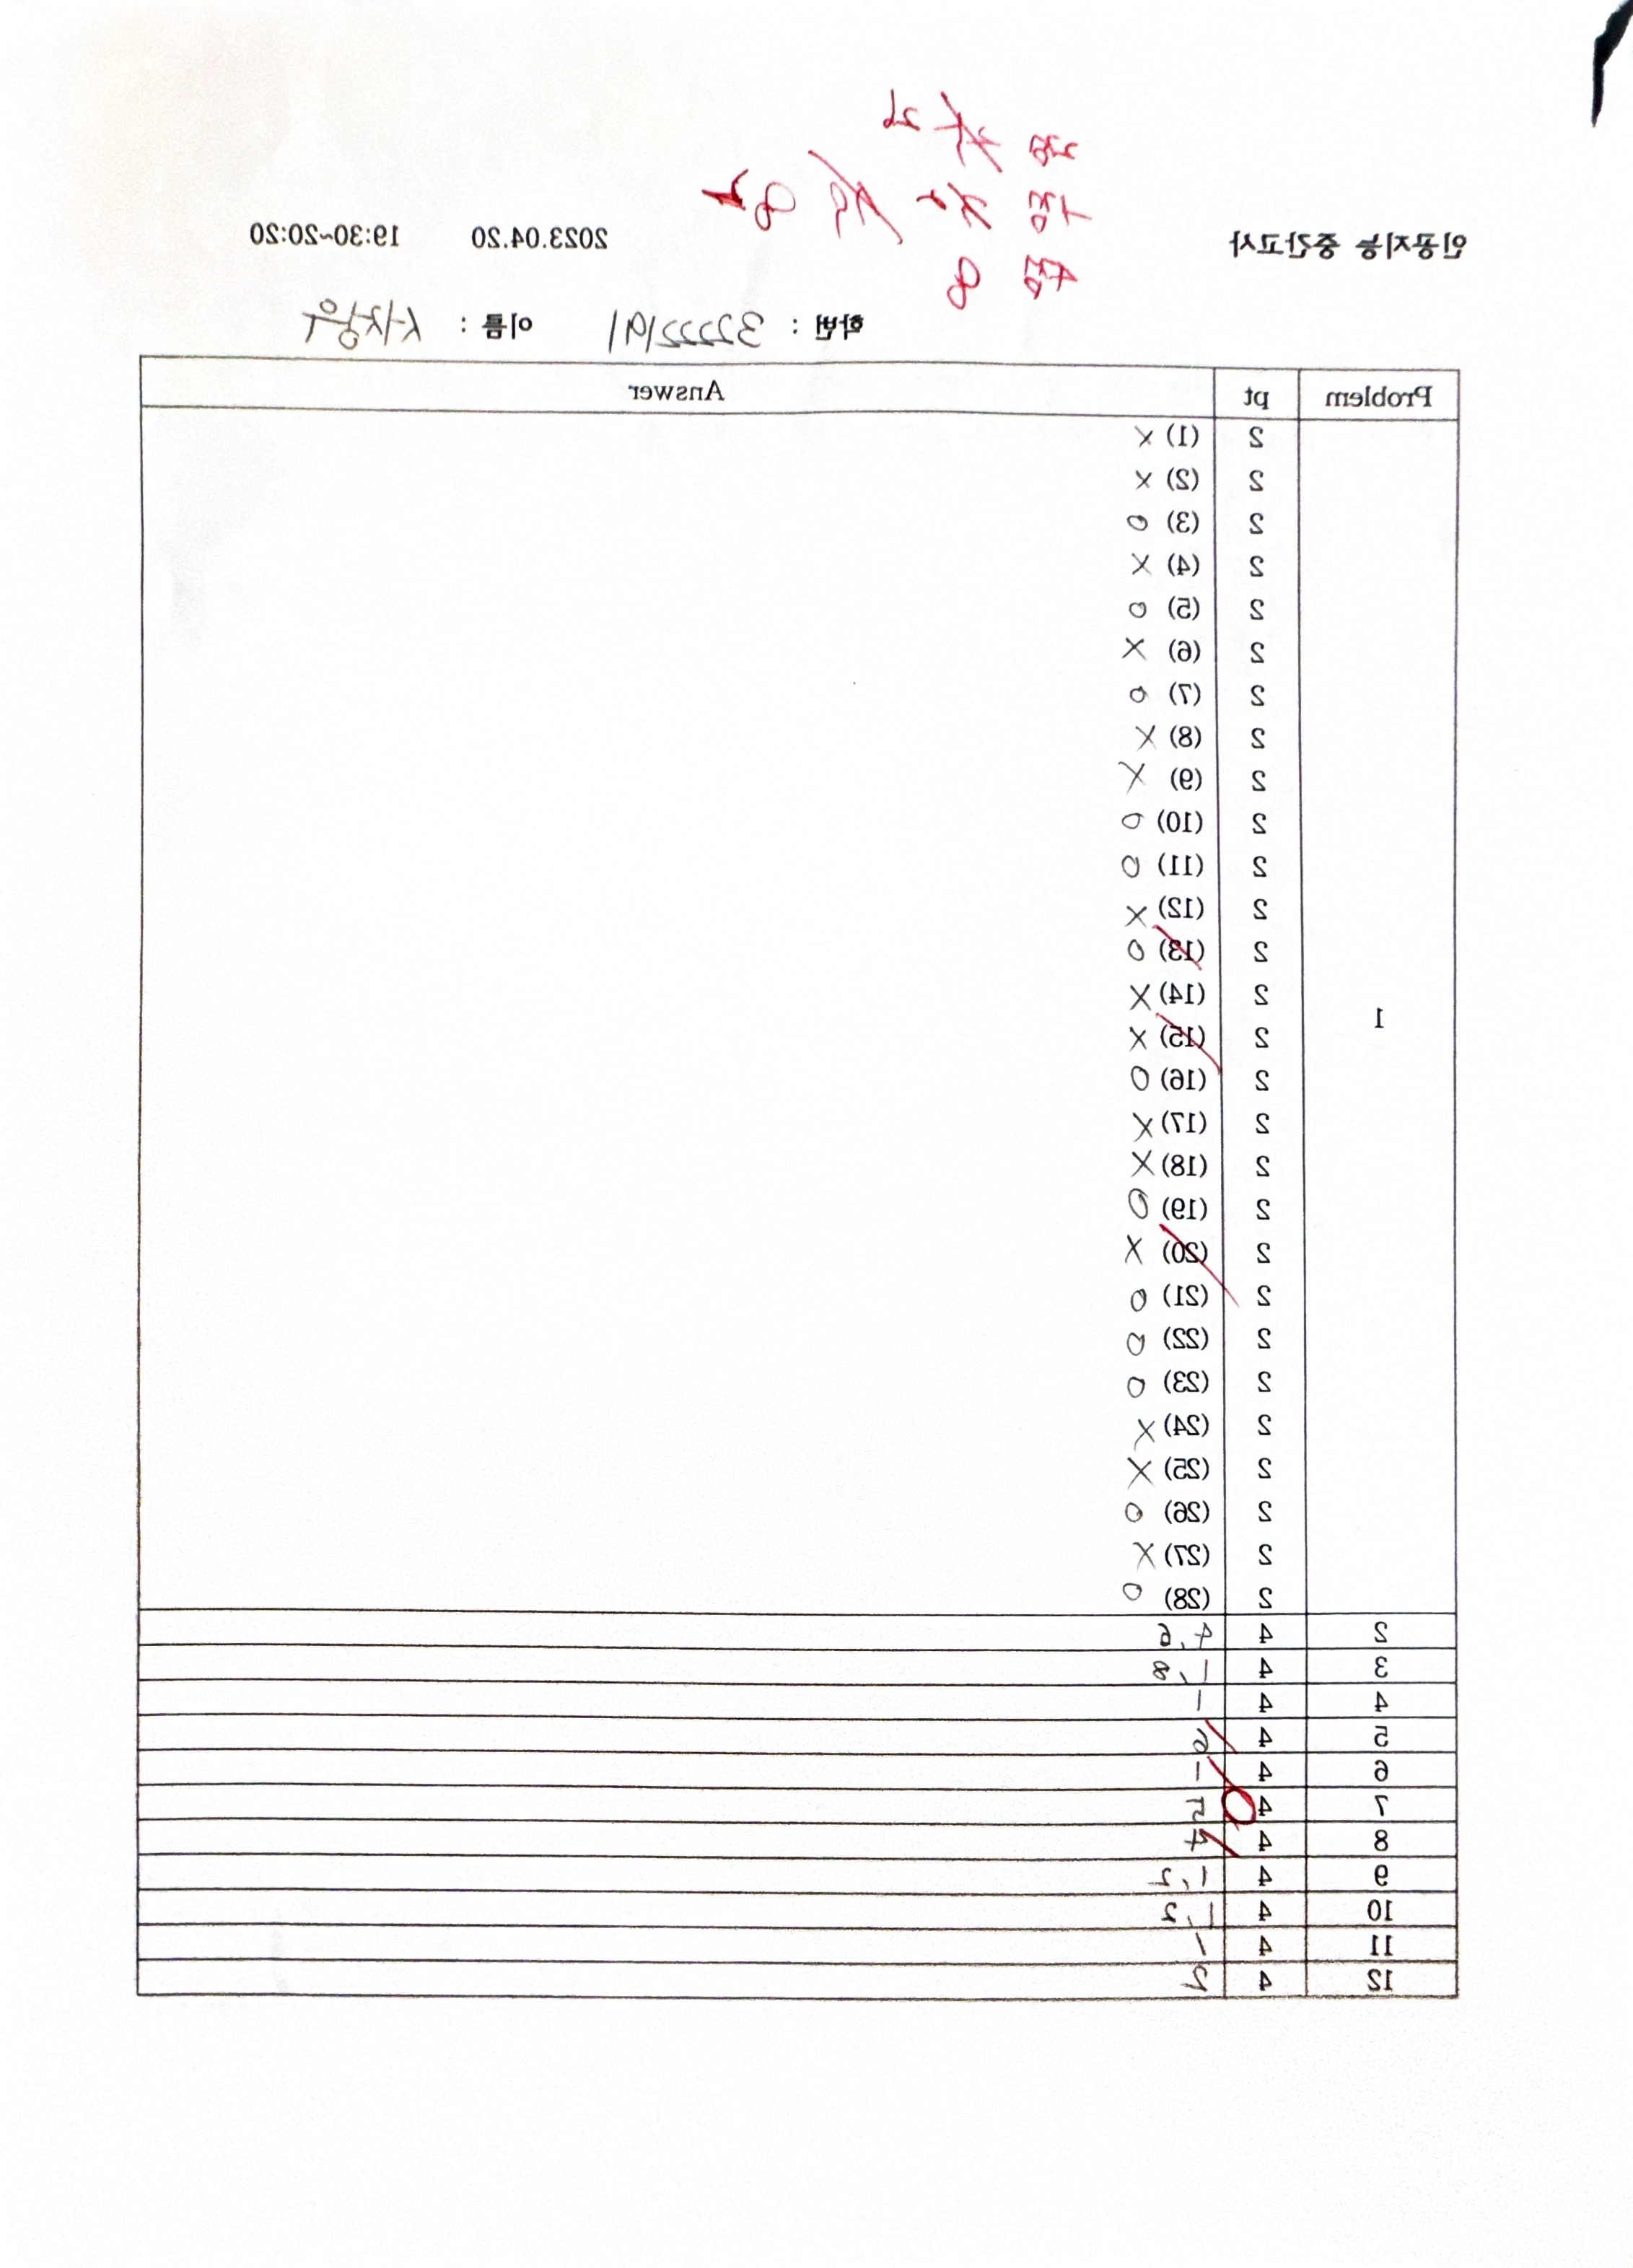 인공지능 중간고사 2023.04.20 19:30~20:20
학번 : 32222191 이름 :
Problem pt Answer
1
2 (1) X
2 (2) X
2 (3) O
2 (4) X
2 (5) O
2 (6) X
2 (7) O
2 (8) X
2 (9) X
2 (10) O
2 (11) O
2 (12) X
2 (13) O
2 (14) X
2 (15) X
2 (16) O
2 (17) X
2 (18) X
2 (19) O
2 (20) X
2 (21) O
2 (22) O
2 (23) O
2 (24) X
2 (25) X
2 (26) O
2 (27) X
2 (28) O
2 4 4, 6
3 4 1, 8
4 4 1
5 4 6
6 4 1
7 4 5
8 4 4
9 4 1, 2
10 4 1, 2
11 4 1
12 4 2